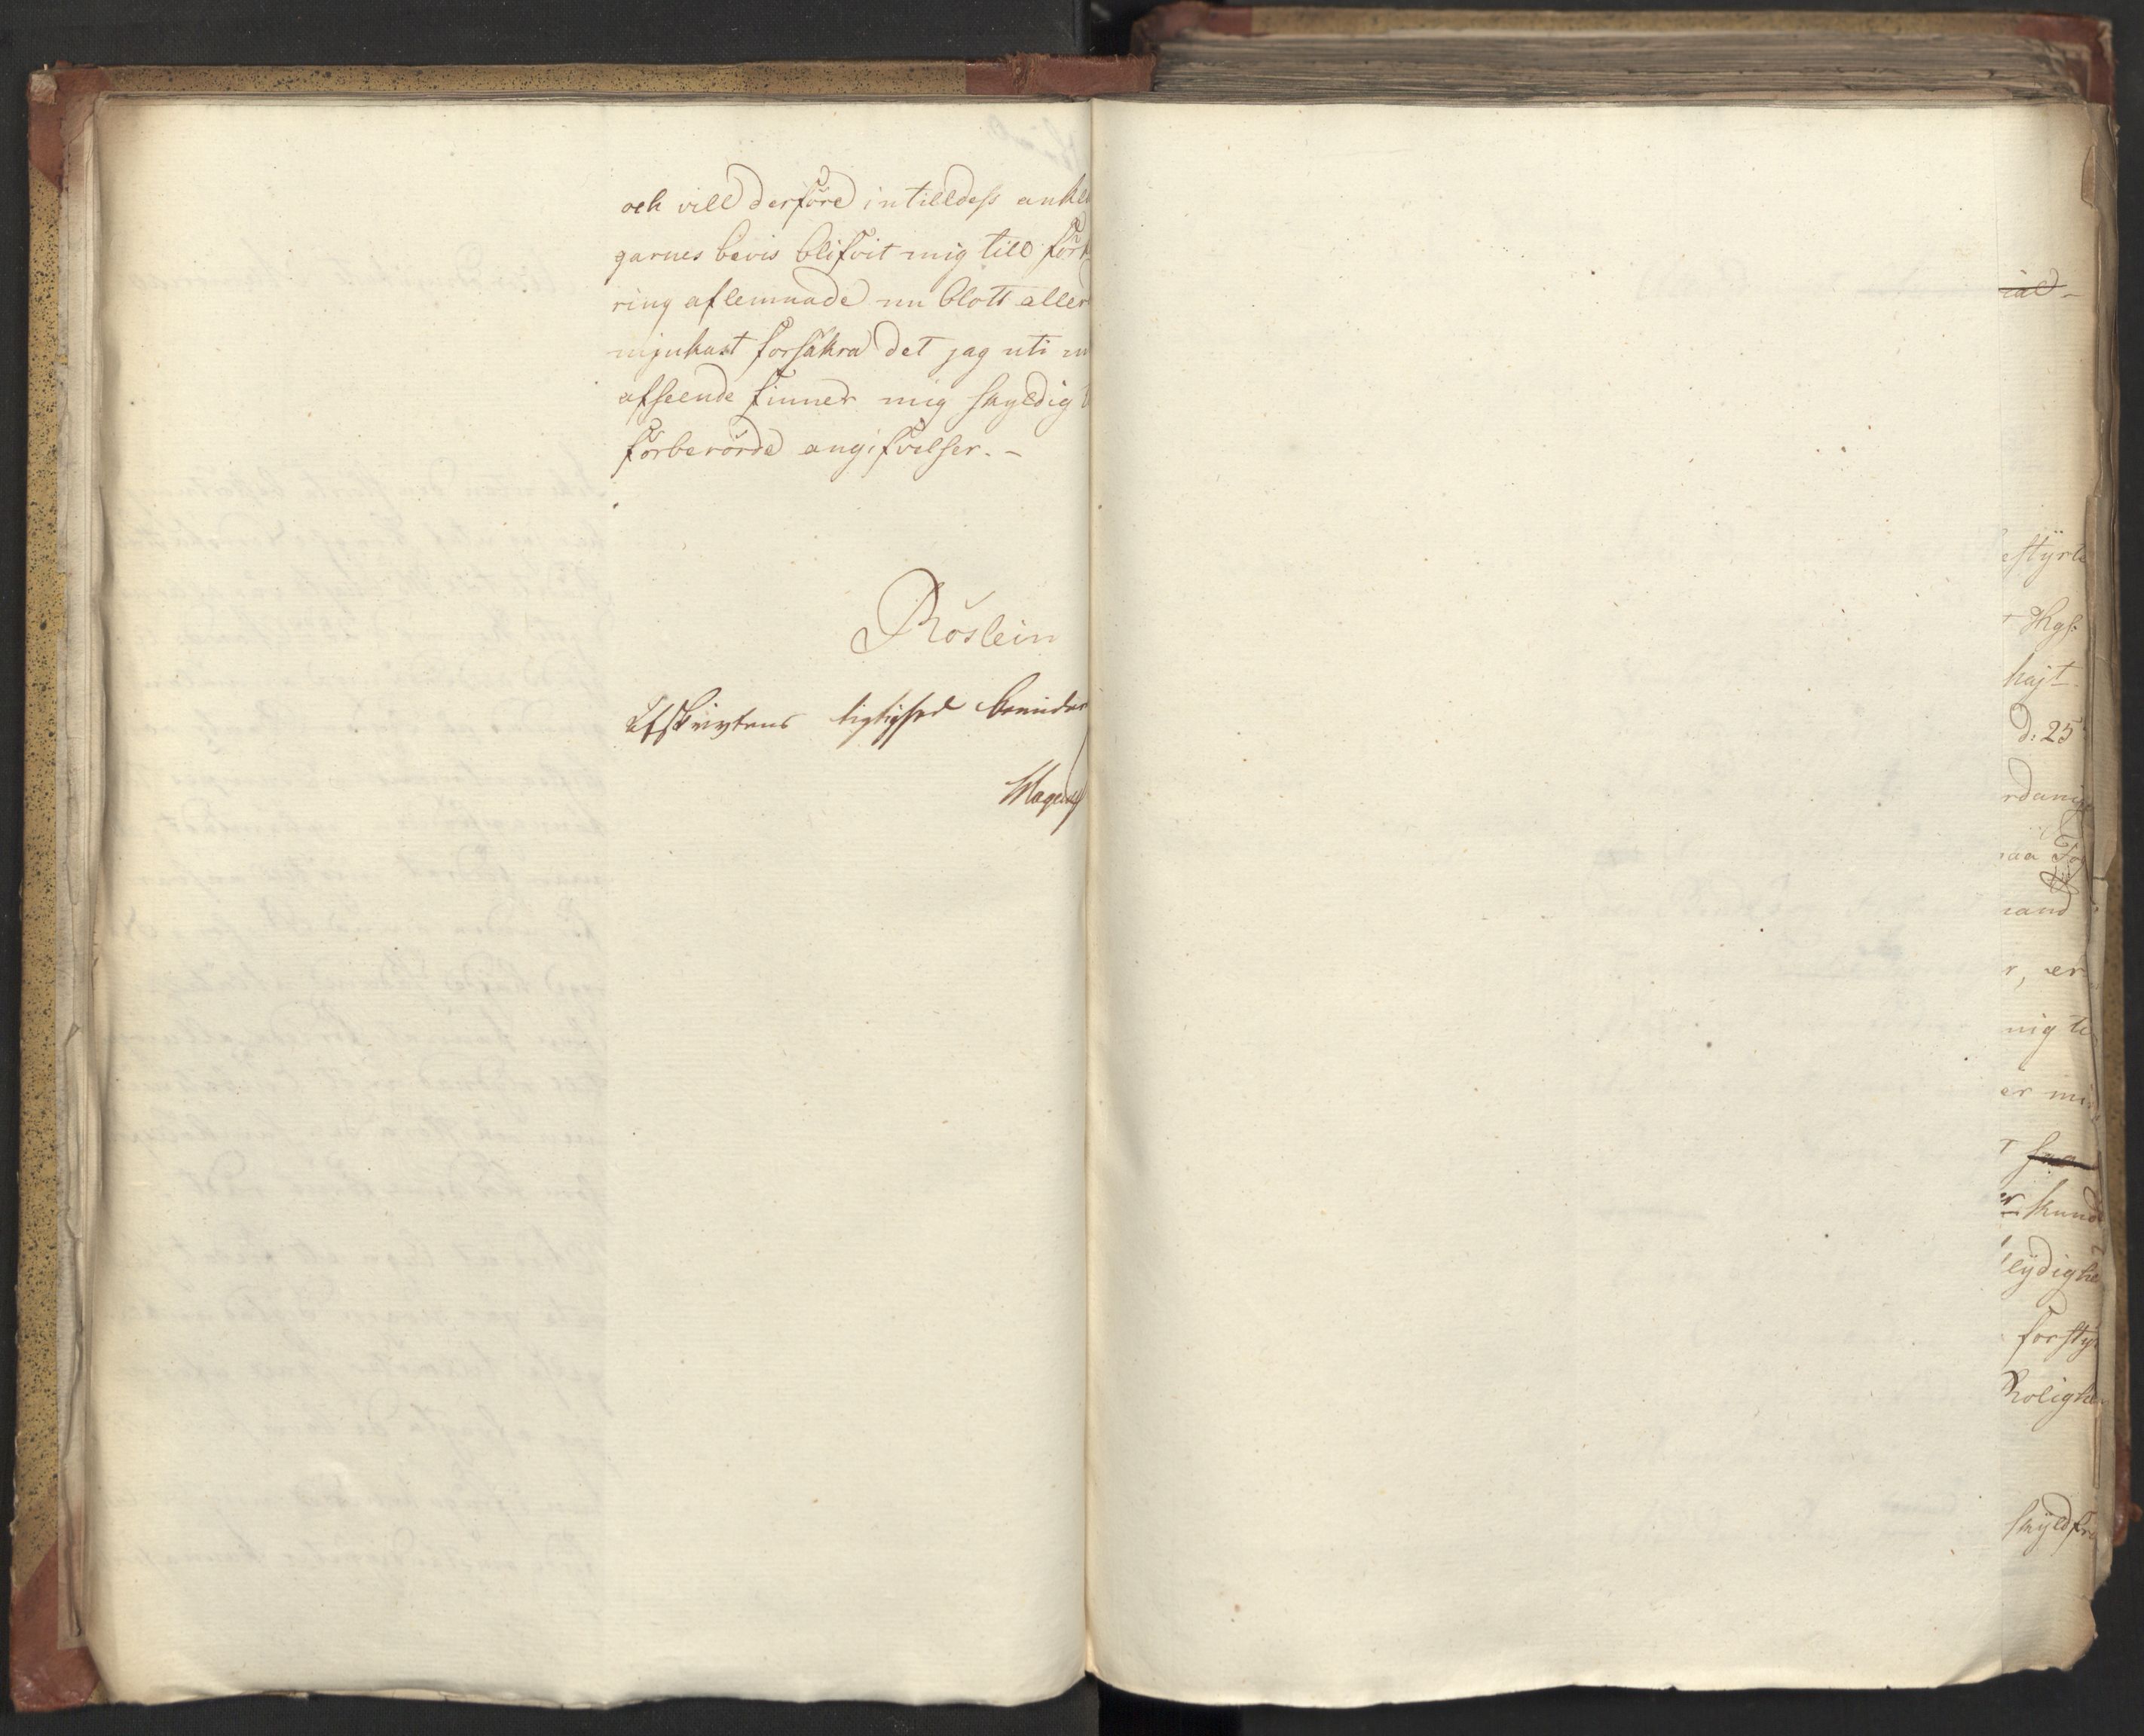 och vill derföre intilldess ankla
garnes bevis blifvit mig till förk
ring aflemnade nu blott aller
mjukast försäkra det jag uti in
afseende finner mig skyldig t
förberörde angifvelser. -
Röslein
Afskrivtens rigtighed bevidner
ial -
estyrte
t Kgs:
hajt
d: 25
rdanig
paa
mand
r, er
mig te
er mi
t saa
er kund
lydighe
forsty
Rolighe
skyldfri